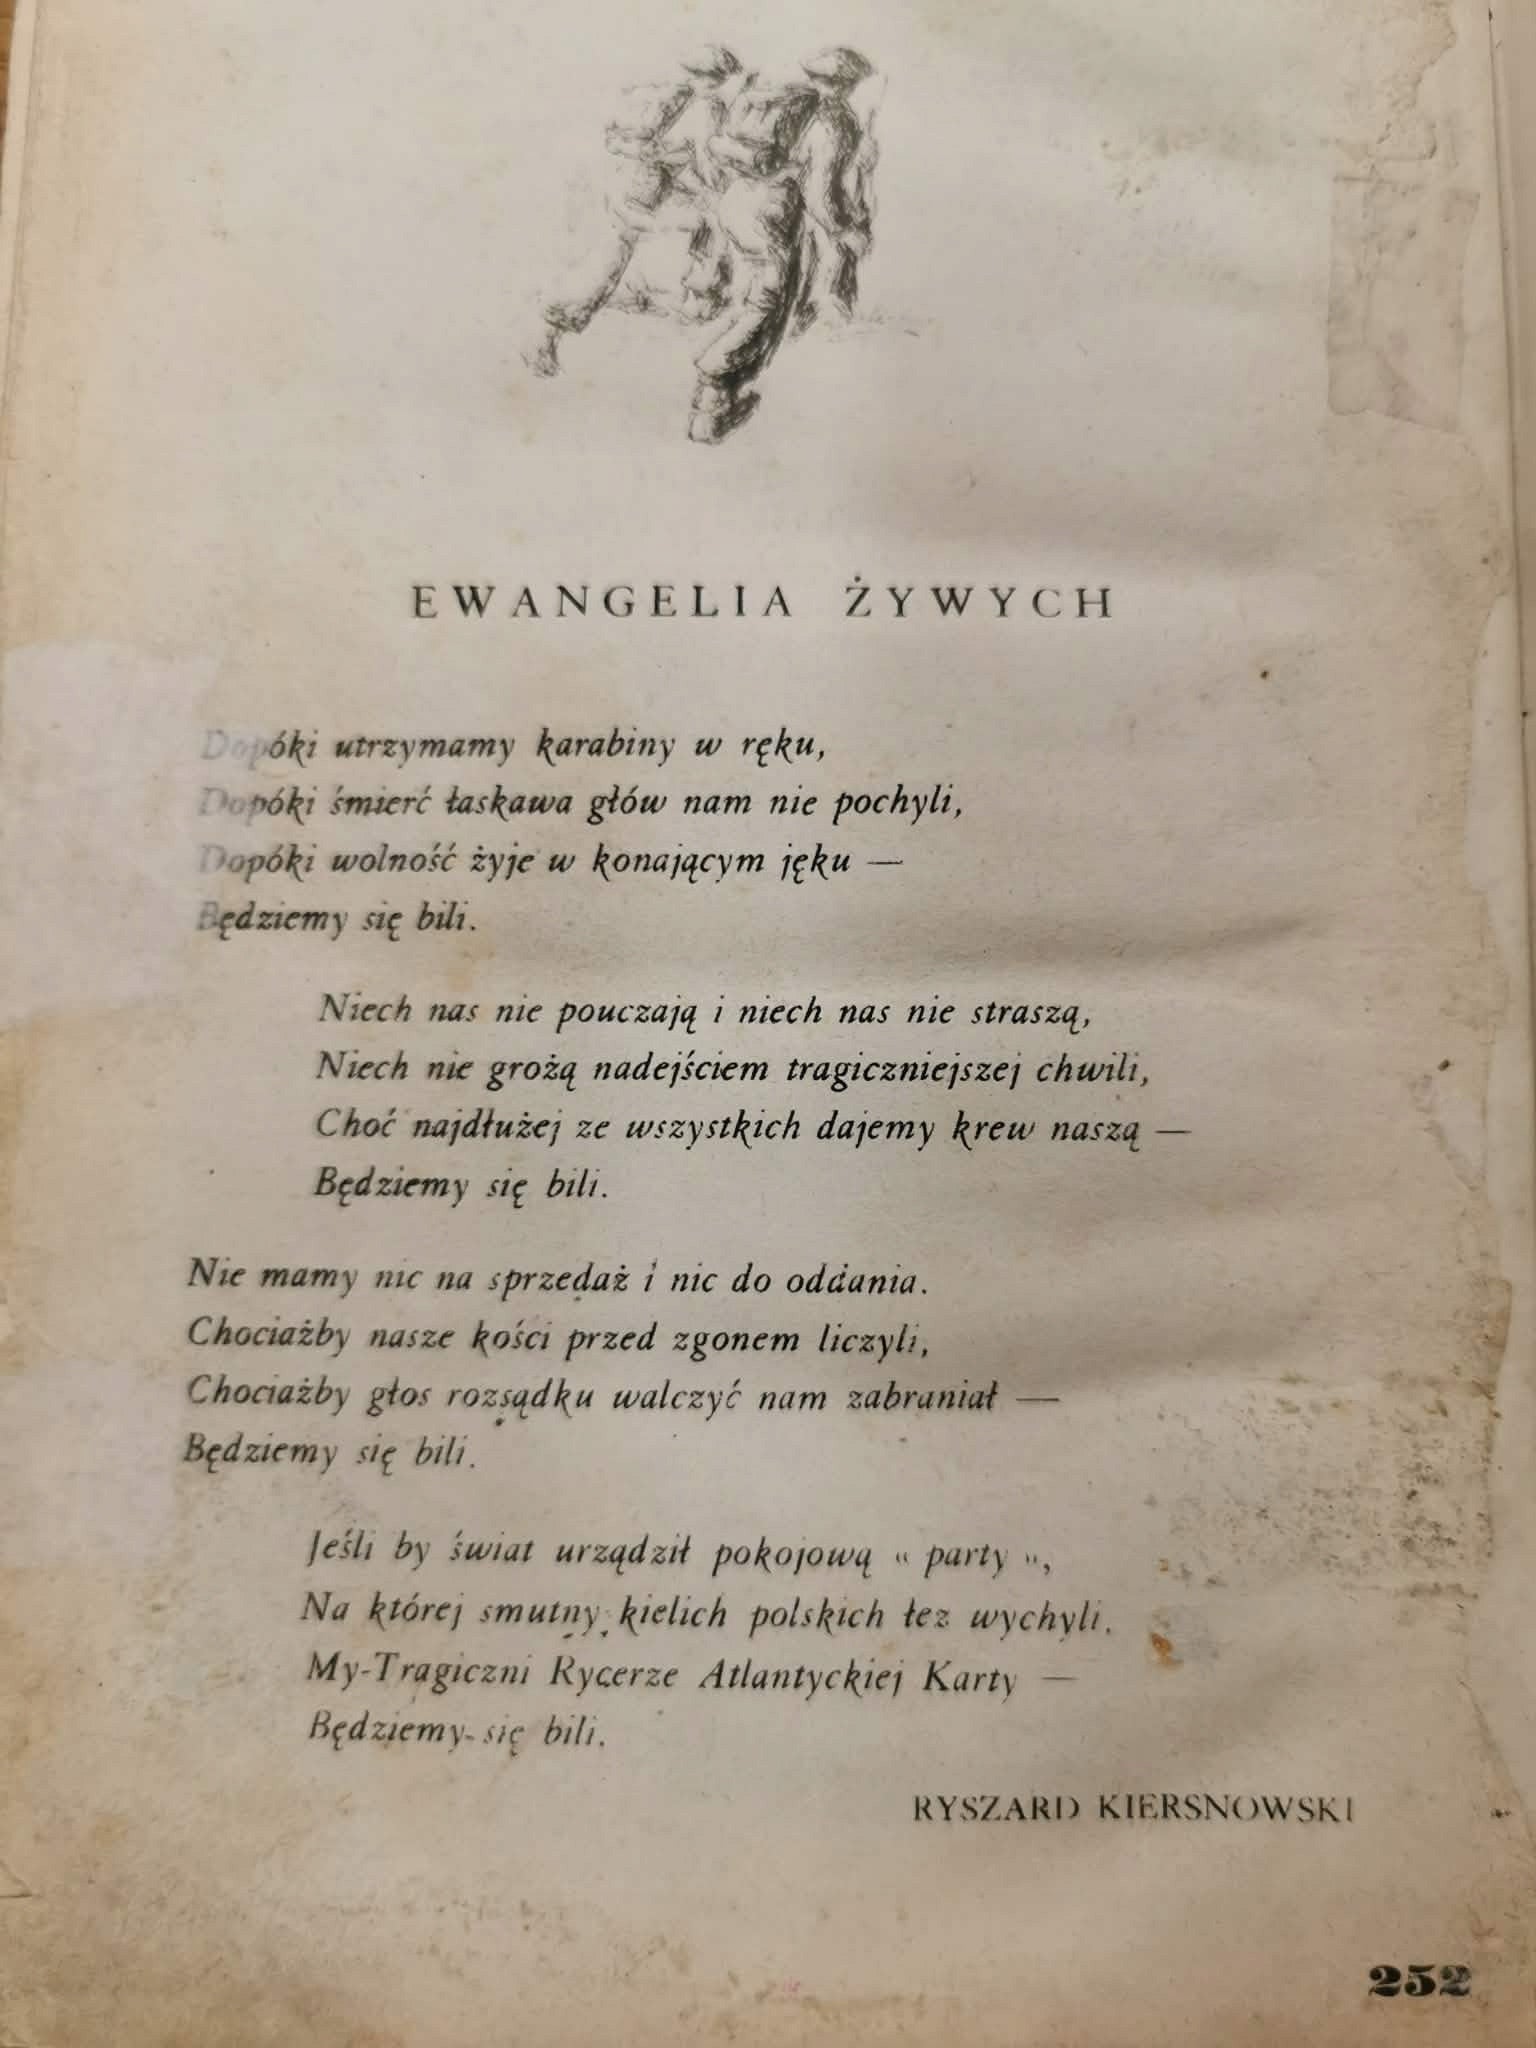 EWANGELIA ŻYWYCH
Dopóki utrzymamy karabiny w ręku,
Dopóki śmierć łaskawa głów nam nie pochyli,
Dopóki wolność żyje w konającym jęku —
Będziemy się bili.
Niech nas nie pouczają i niech nas nie straszą,
Niech nie grożą nadejściem tragiczniejszej chwili,
Choć najdłużej ze wszystkich dajemy krew naszą —
Będziemy się bili.
Nie mamy nic na sprzedaż i nic do oddania.
Chociażby nasze kości przed zgonem liczyli,
Chociażby głos rozsądku walczyć nam zabraniał —
Będziemy się bili.
Jeśli by świat urządził pokojową « party »,
Na której smutny kielich polskich łez wychyli.
My-Tragiczni Rycerze Atlantyckiej Karty —
Będziemy się bili.
RYSZARD KIERSNOWSKI
252